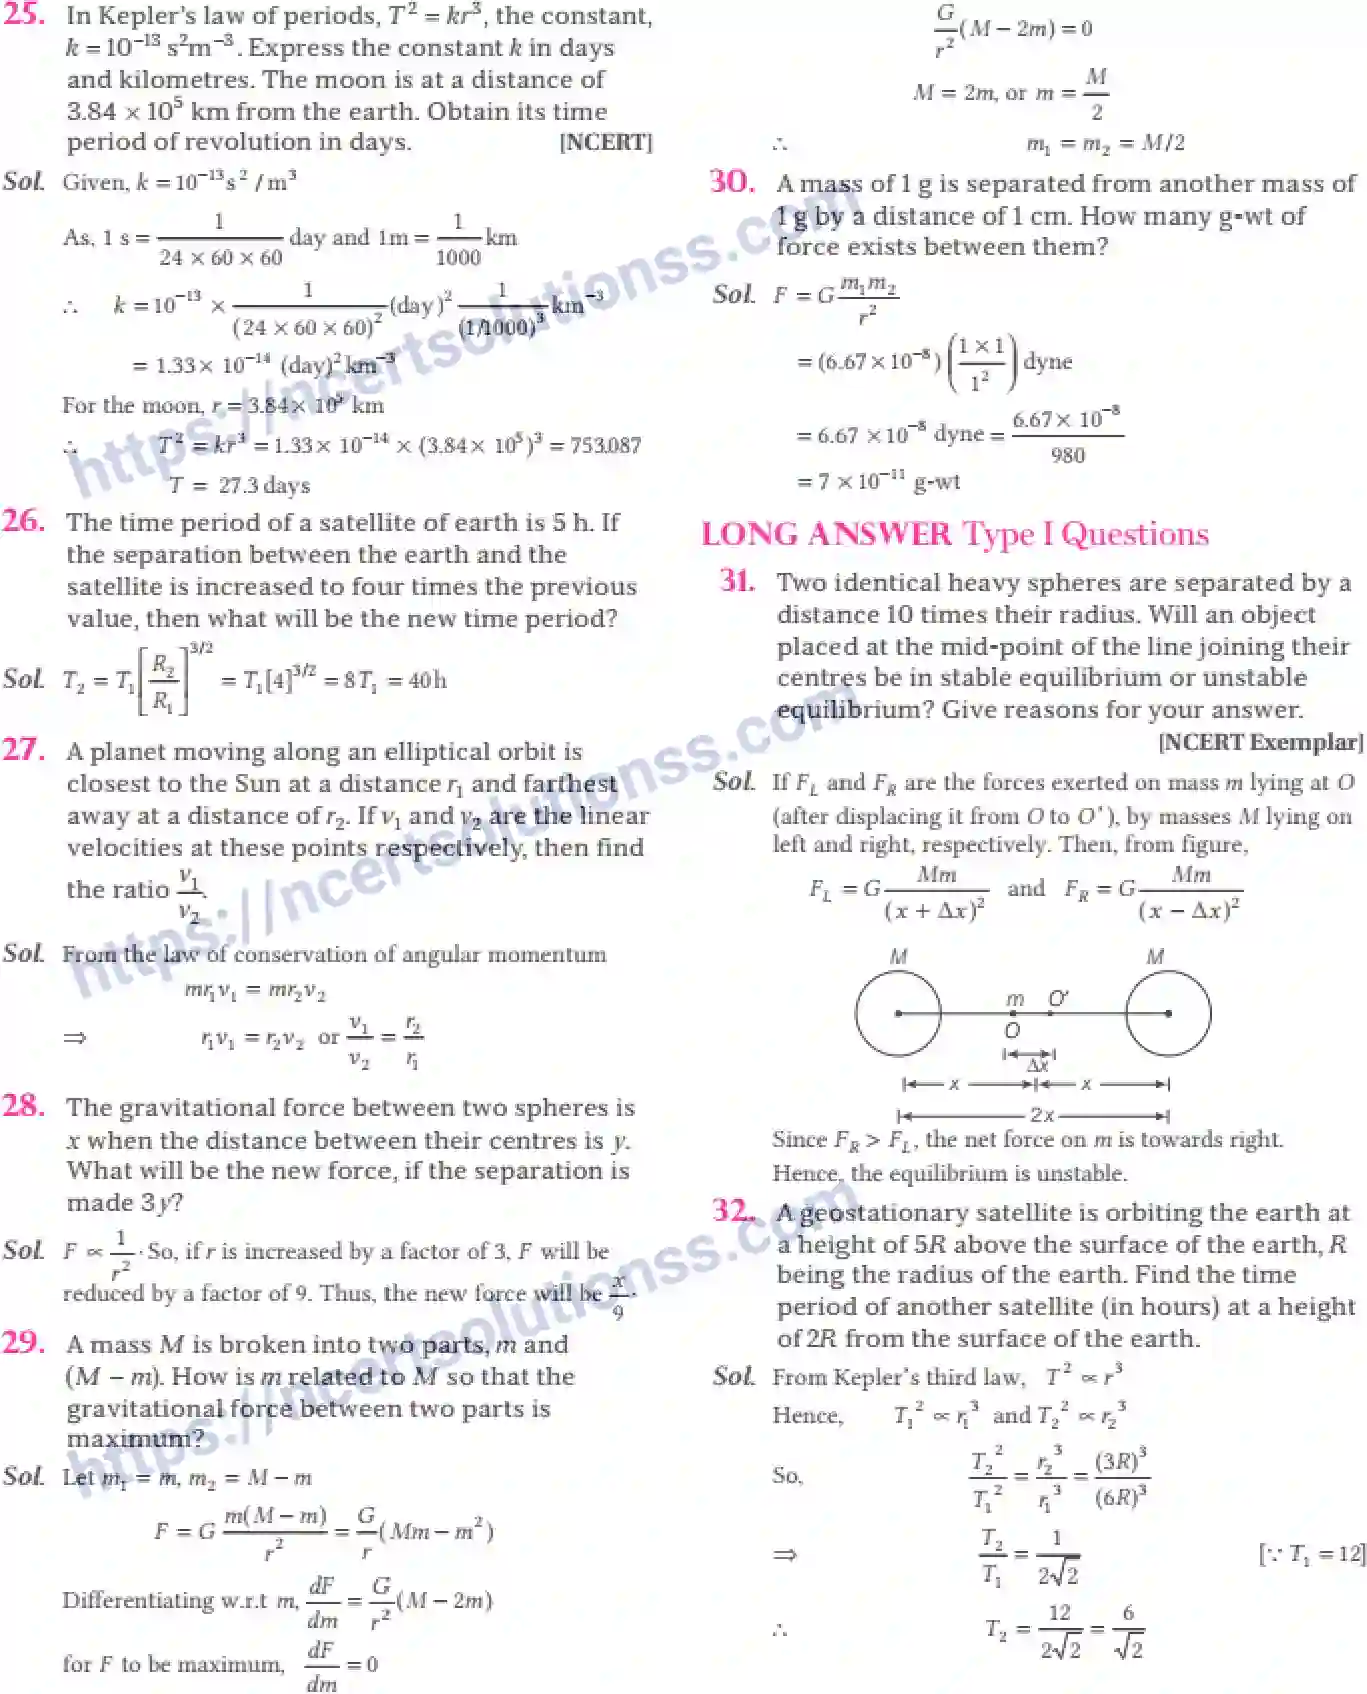 25. In Kepler's law of periods, T² = kr³, the constant,
k = 10⁻¹³ s²m⁻³. Express the constant k in days
and kilometres. The moon is at a distance of
3.84 × 10⁵ km from the earth. Obtain its time
period of revolution in days. [NCERT]
Sol. Given, k = 10⁻¹³s² / m³
As, 1 s = 1/(24 × 60 × 60) day and 1m = 1/1000 km
∴ k = 10⁻¹³ × 1/(24 × 60 × 60)² (day)² 1/(1/1000)³ km⁻³
= 1.33 × 10⁻¹⁴ (day)² km⁻³
For the moon, r = 3.84 × 10⁵ km
∴ T² = kr³ = 1.33 × 10⁻¹⁴ × (3.84 × 10⁵)³ = 753.087
T = 27.3 days
26. The time period of a satellite of earth is 5 h. If
the separation between the earth and the
satellite is increased to four times the previous
value, then what will be the new time period?
Sol. T₂ = T₁[R₂/R₁]^3/2 = T₁[4]^3/2 = 8T₁ = 40 h
27. A planet moving along an elliptical orbit is
closest to the Sun at a distance r₁ and farthest
away at a distance of r₂. If v₁ and v₂ are the linear
velocities at these points respectively, then find
the ratio v₁/v₂.
Sol. From the law of conservation of angular momentum
mr₁v₁ = mr₂v₂
⇒ r₁v₁ = r₂v₂ or v₁/v₂ = r₂/r₁
28. The gravitational force between two spheres is
x when the distance between their centres is y.
What will be the new force, if the separation is
made 3y?
Sol. F ∝ 1/r². So, if r is increased by a factor of 3, F will be
reduced by a factor of 9. Thus, the new force will be x/9.
29. A mass M is broken into two parts, m and
(M − m). How is m related to M so that the
gravitational force between two parts is
maximum?
Sol. Let m₁ = m, m₂ = M − m
F = G m(M − m)/r² = G/r (Mm − m²)
Differentiating w.r.t m, dF/dm = G/r² (M − 2m)
for F to be maximum, dF/dm = 0
G/r² (M − 2m) = 0
M = 2m, or m = M/2
∴ m₁ = m₂ = M/2
30. A mass of 1 g is separated from another mass of
1 g by a distance of 1 cm. How many g-wt of
force exists between them?
Sol. F = G m₁m₂/r²
= (6.67 × 10⁻⁸) (1 × 1/1²) dyne
= 6.67 × 10⁻⁸ dyne = 6.67 × 10⁻⁸/980
= 7 × 10⁻¹¹ g-wt
LONG ANSWER Type I Questions
31. Two identical heavy spheres are separated by a
distance 10 times their radius. Will an object
placed at the mid-point of the line joining their
centres be in stable equilibrium or unstable
equilibrium? Give reasons for your answer.
[NCERT Exemplar]
Sol. If F_L and F_R are the forces exerted on mass m lying at O
(after displacing it from O to O'), by masses M lying on
left and right, respectively. Then, from figure,
F_L = G Mm/(x + Δx)² and F_R = G Mm/(x − Δx)²
M M
m O'
O
Δx
x x
2x
Since F_R > F_L, the net force on m is towards right.
Hence, the equilibrium is unstable.
32. A geostationary satellite is orbiting the earth at
a height of 5R above the surface of the earth, R
being the radius of the earth. Find the time
period of another satellite (in hours) at a height
of 2R from the surface of the earth.
Sol. From Kepler's third law, T² ∝ r³
Hence, T₁² ∝ r₁³ and T₂² ∝ r₂³
So, T₂²/T₁² = r₂³/r₁³ = (3R)³/(6R)³
⇒ T₂/T₁ = 1/2√2 [∵ T₁ = 12]
∴ T₂ = 12/2√2 = 6/√2
https://ncertsolutionss.com
https://ncertsolutionss.com
https://ncertsolutionss.com